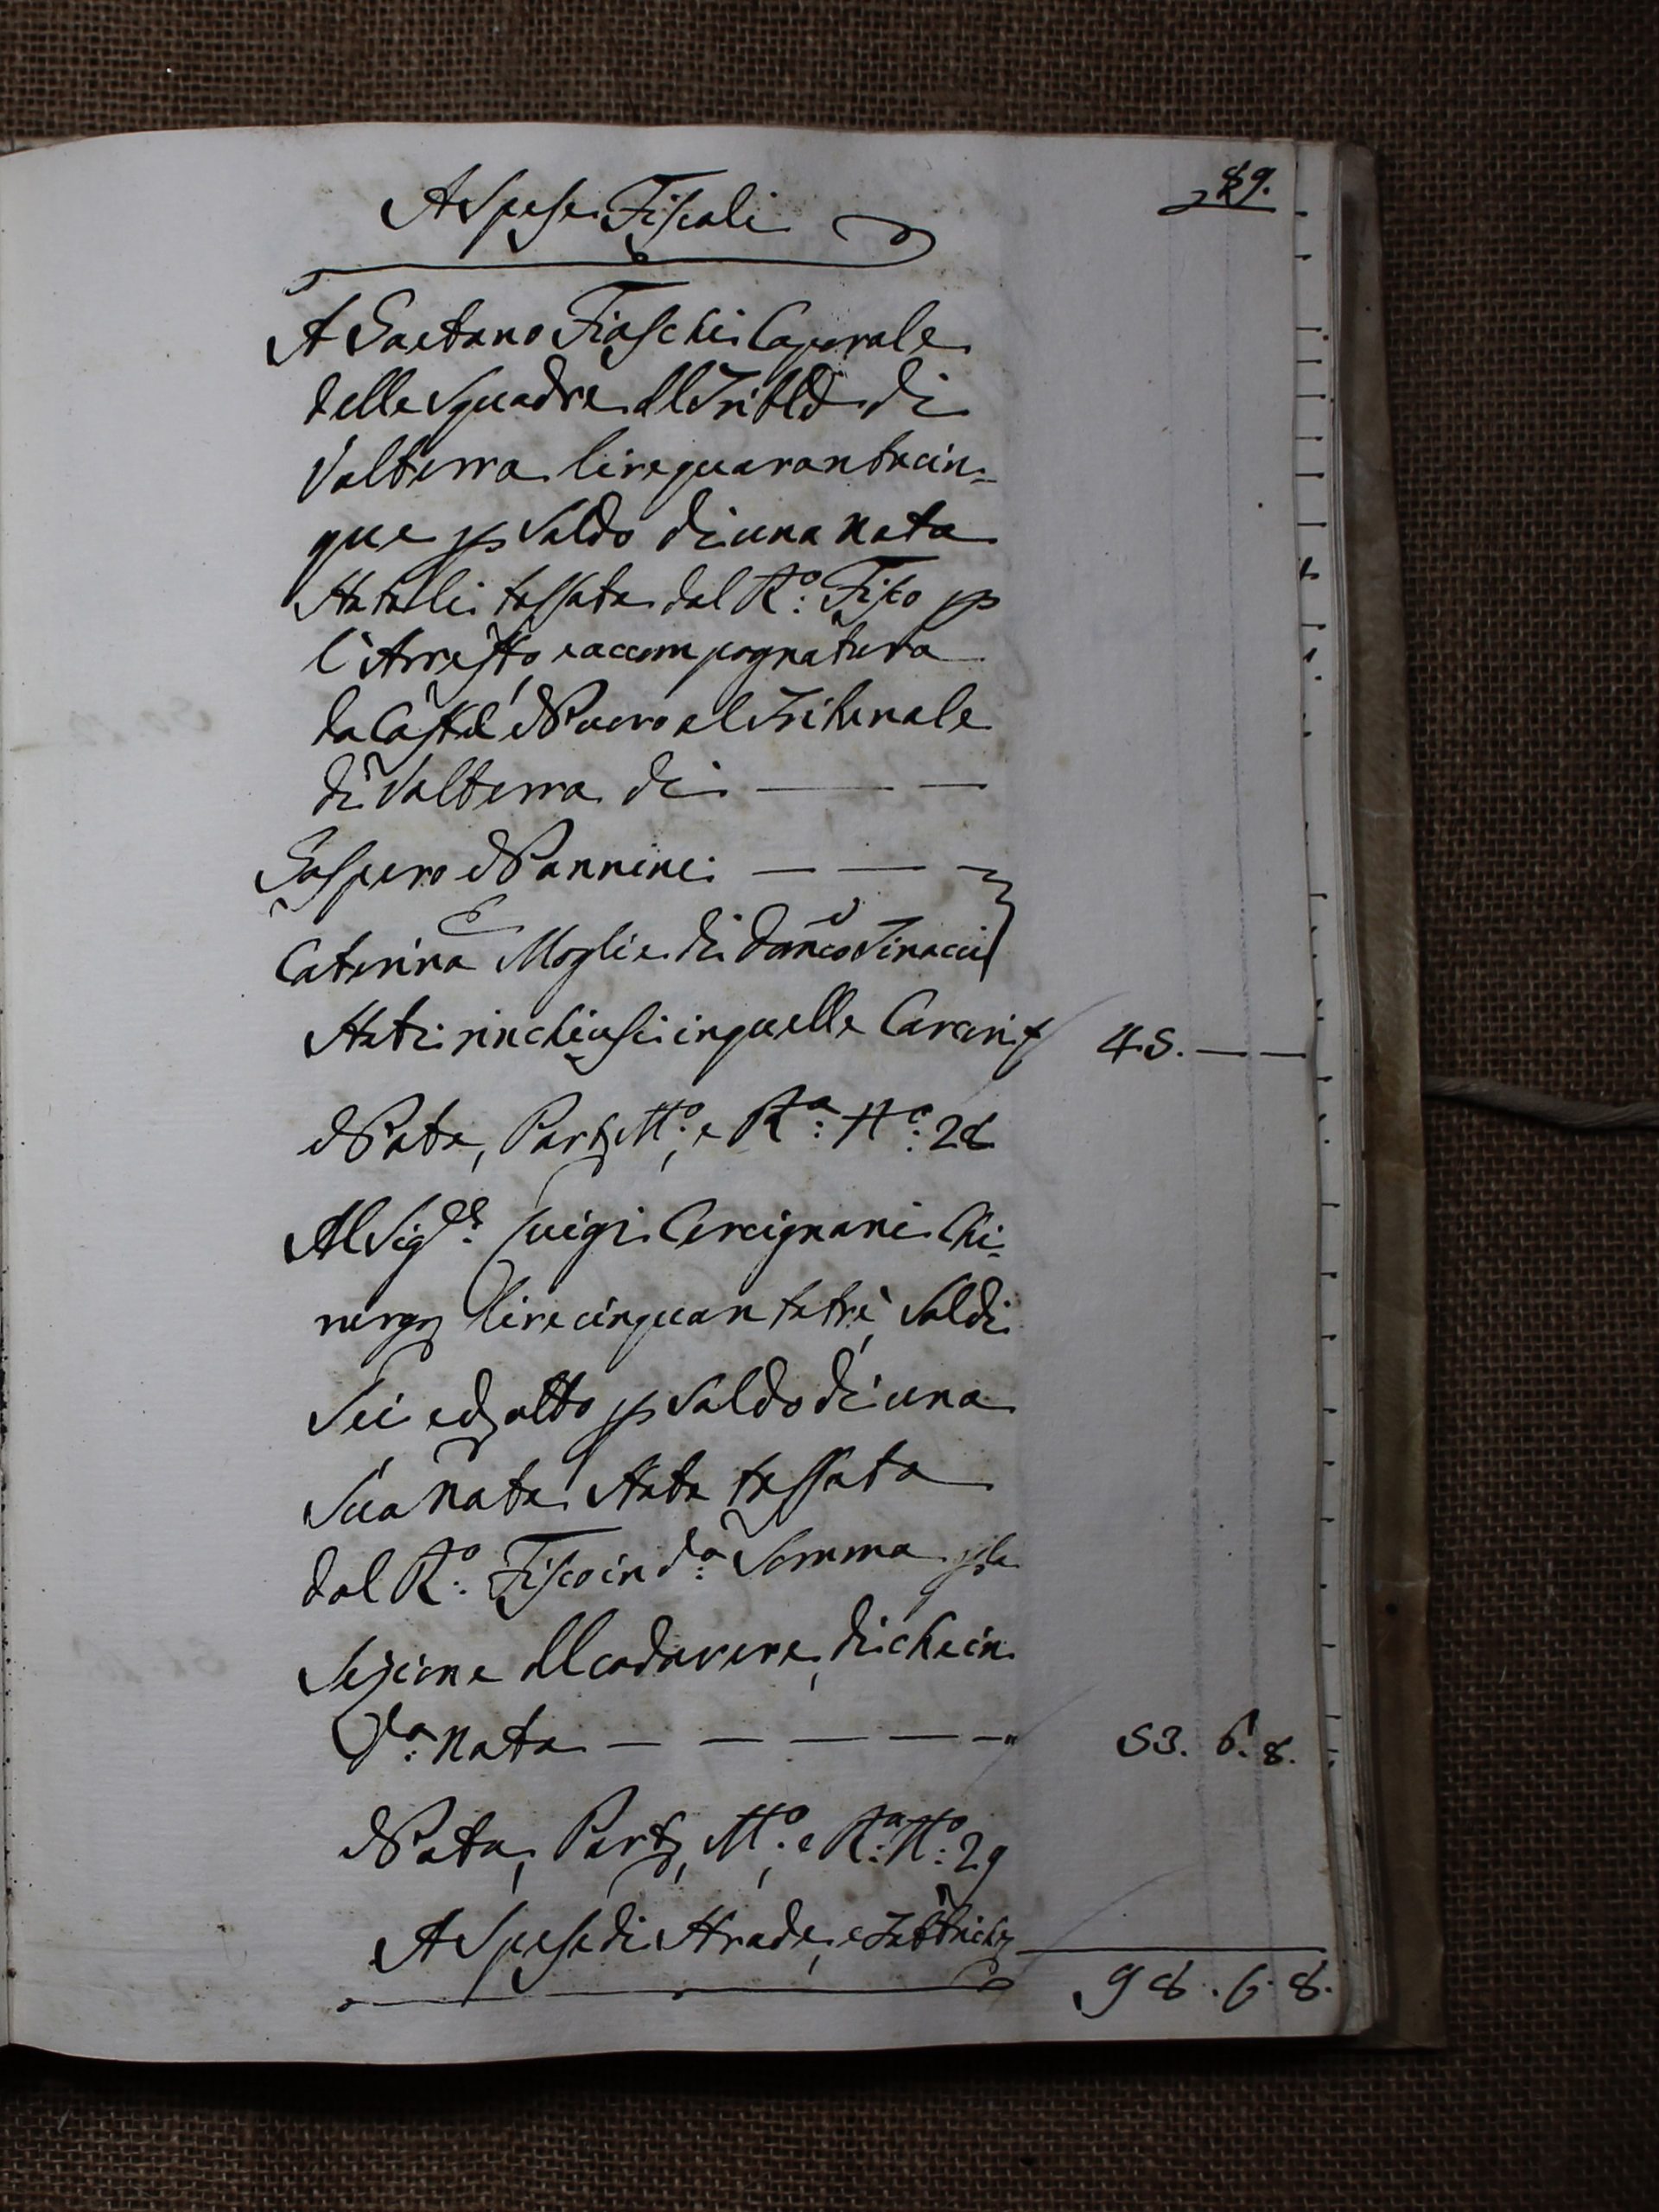 89.
A Spese Fiscali
A Gaetano Fiaschi Caporale
delle Squadre del Trible di
Volterra lire quarantacin=
que p Saldo di una nota
Statali tassata dal R.º Fisco p
l'Arresto, e accompagnatura
da Castel Nuovo al Tribunale
di Volterra di — —
Gaspero Nannini — — —
E
Caterina Moglie di Domco Tinacci
Stati rinchiusi in quelle Carceri 45. — —
Nota, Parto, Mo, e Ra: No: 28
Al Sigre: Luigi Cercignani Chi=
rurgo lire cinquantatrè, Soldi
Sei ed otto p Saldo di una
Sua nota Stata tassata
dal R.º Fisco in da: Somma p la
Sezione del cadavere, di che in
da: nota — — — — — 53. 6. 8.
Nota, Parto, Mo: e Ra: No: 29
A Spese di Strade, e Fabbriche
98. 6. 8.